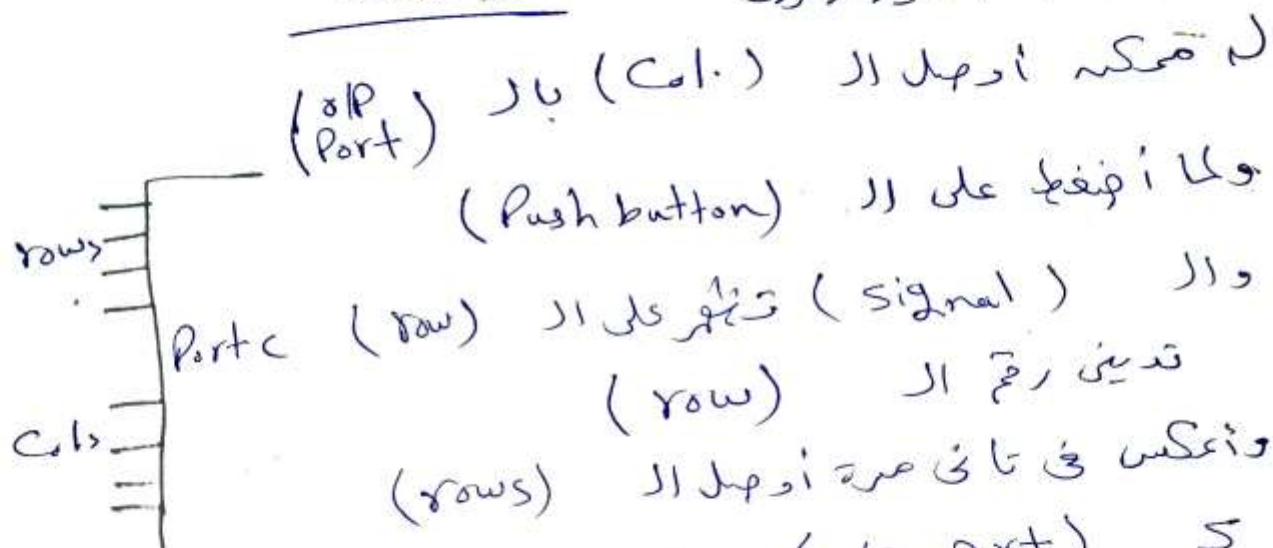 ممكن أوصل الـ (Col.) بالـ (O/P Port)
ولما أضغط على الـ (Push button)
والـ (signal) تظهر على الـ (row)
تديني رقم الـ (row)
وأعكس في تاني مرة أوصل الـ (rows)
كـ
rows
Port C
Cols